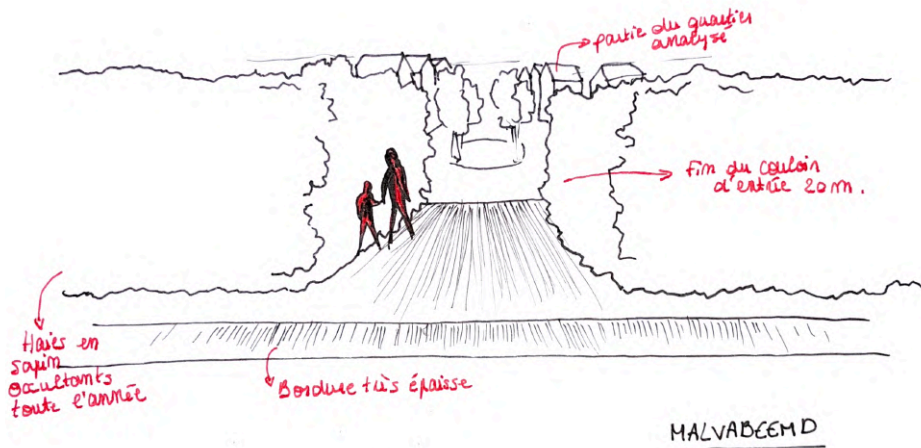 partie du quartier
analysé
Fin du couloir
d'entrée 20m.
Haies en
sapin
occultants
toute l'année
Bordure très épaisse
MALVABEEMD